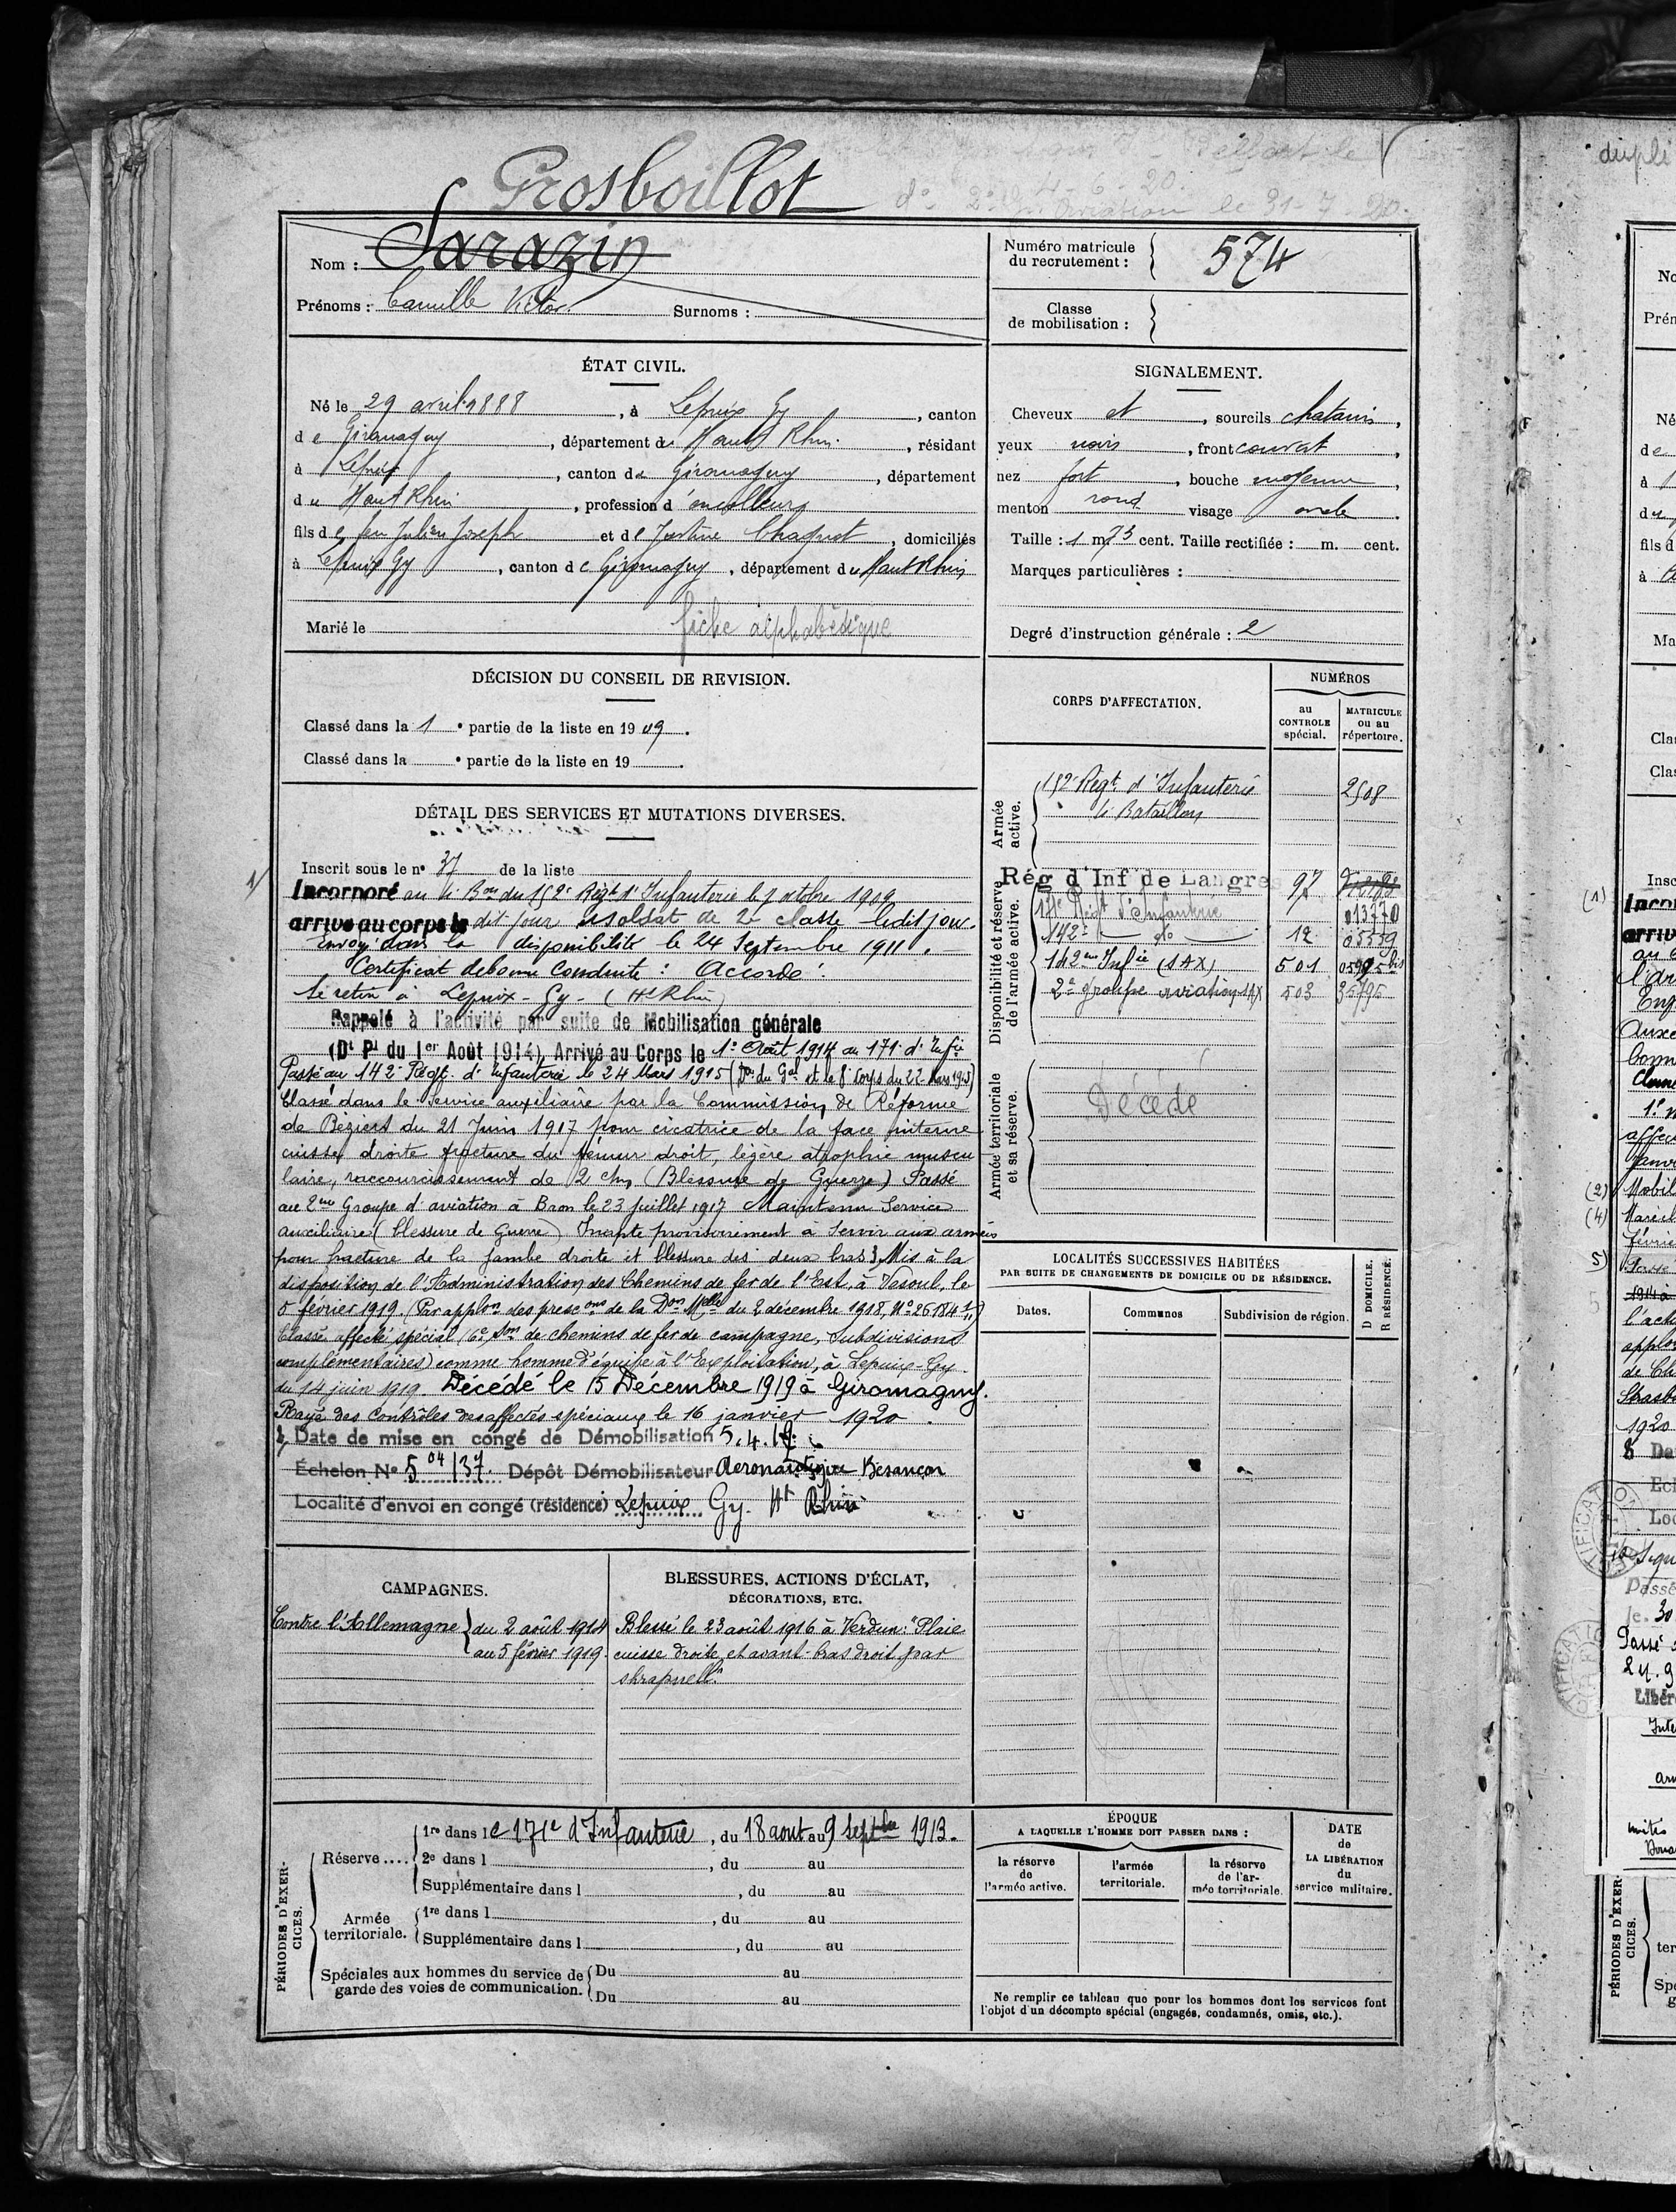 Grosboillot
Belfort le
4-6-20.
2e aviation le 31-7-20.
Nom : Sarazin
Prénoms : Camille Victor Surnoms :
Numéro matricule
du recrutement : 574
Classe
de mobilisation :
ÉTAT CIVIL.
Né le 29 avril 1888, à Lepuix Gy, canton
de Giromagny, département du Haut Rhin, résidant
à Lepuix, canton de Giromagny, département
du Haut Rhin, profession d'encolleur
fils de feu Julien Joseph et de Justine Chaquet, domiciliés
à Lepuix Gy, canton de Giromagny, département du Haut Rhin
Marié le fiche alphabétique
SIGNALEMENT.
Cheveux et, sourcils chatains,
yeux noirs, front couvert,
nez fort, bouche moyenne,
menton rond visage ovale.
Taille : 1 m. 73 cent. Taille rectifiée : m. cent.
Marques particulières :
Degré d'instruction générale : 2
DÉCISION DU CONSEIL DE REVISION.
Classé dans la 1e partie de la liste en 1909.
Classé dans la e partie de la liste en 19 .
DÉTAIL DES SERVICES ET MUTATIONS DIVERSES.
Inscrit sous le no 37 de la liste
1/ Incorporé au 4e Bon du 152e Régt d'Infanterie le 7 octobre 1909
arrivé au corps le dit jour soldat de 2e classe ledit jour.
Envoyé dans la disponibilité le 24 Septembre 1911.
Certificat de bonne Conduite : Accordé.
Se retire à Lepuix-Gy (Ht Rhin)
Rappelé à l'activité par suite de Mobilisation générale
(Dt Pl du 1er Août 1914) Arrivé au Corps le 1er Août 1914 au 171e d'Infie
Passé au 142e Régt. d'Infanterie le 24 Mars 1915 (Don du Gal et le 8e Corps du 22 Mars 1915)
Classé dans le Service auxiliaire par la Commission de Réforme
de Béziers du 21 Juin 1917 pour cicatrice de la face interne
cuisse droite fracture du fémur droit, légère atrophie muscu
laire, raccourcissement de 2 cm (Blessure de Guerre) Passé
au 2me Groupe d'aviation à Bron le 23 juillet 1917 Maintenu Service
auxiliaire (blessure de Guerre) Inapte provisoirement à servir aux armées
pour fracture de la jambe droite et blessure des deux bras. Mis à la
disposition de l'Administration des Chemins de fer de l'Est, à Vesoul, le
5 février 1919 (Par applon des prescons de la Don Mlle du 2 décembre 1918, No 26.184 1/11)
Classé affecté spécial (6e Son de chemins de fer de campagne, Subdivisions
complémentaires) comme homme d'équipe à l'Exploitation, à Lepuix-Gy.
du 14 juin 1919. Décédé le 15 Décembre 1919 à Giromagny.
Rayé des Contrôles des affectés spéciaux le 16 janvier 1920.
Date de mise en congé de Démobilisation 5.4.19.
Échelon No 504/37. Dépôt Démobilisateur Aeronautique Besançon
Localité d'envoi en congé (résidence) Lepuix Gy. Ht Rhin
CORPS D'AFFECTATION.
NUMÉROS
au
CONTROLE
spécial.
MATRICULE
ou au
répertoire.
Armée
active.
152e Régt d'Infanterie 2508
4e Bataillon
Disponibilité et réserve
de l'armée active.
Rég d'Inf de Langres 97
171e Régt d'Infanterie 013770
142e do 12 05559
142me Infie (SAX) 501 05905 bis
2e groupe aviation SAX 503 35795
Armée territoriale
et sa réserve.
Décédé
LOCALITÉS SUCCESSIVES HABITÉES
PAR SUITE DE CHANGEMENTS DE DOMICILE OU DE RÉSIDENCE.
Dates. Communes Subdivision de région. D DOMICILE. R RÉSIDENCE.
CAMPAGNES.
Contre l'Allemagne du 2 août 1914
au 5 février 1919.
BLESSURES, ACTIONS D'ÉCLAT,
DÉCORATIONS, ETC.
Blessé le 23 août 1916 à Verdun : "Plaie
cuisse droite et avant-bras droit par
shrapnell."
PÉRIODES D'EXER-
CICES.
Réserve.... 1re dans le 171e d'Infanterie, du 18 aout au 9 Septbre 1913.
2e dans l , du au
Supplémentaire dans l , du au
Armée
territoriale. 1re dans l , du au
Supplémentaire dans l , du au
Spéciales aux hommes du service de
garde des voies de communication. Du au
Du au
ÉPOQUE
A LAQUELLE L'HOMME DOIT PASSER DANS :
la réserve
de
l'armée active.
l'armée
territoriale.
la réserve
de l'ar-
mée territoriale.
DATE
de
LA LIBÉRATION
du
service militaire.
Ne remplir ce tableau que pour les hommes dont les services font
l'objet d'un décompte spécial (engagés, condamnés, omis, etc.).